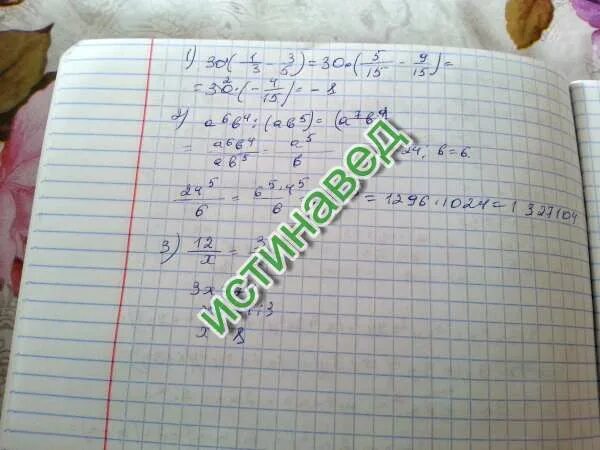 1) 30(1/3 - 3/5) = 30·(5/15 - 9/15) =
= 30·(-4/15) = -8
2) a⁶b⁴ : (ab⁵) =
= a⁶b⁴/ab⁵ = a⁵/b 24, b=6.
24⁵/6 = 6⁵·4⁵/6 = 1296·1024 = 1 327 104
3) 12/x = 3
3x
x 8
ИСТИНАВЕД